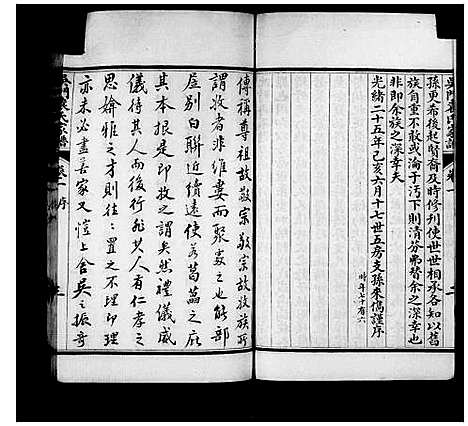 孫更希後起賢裔及時修刊使世世相承各知以舊
族自重不敢或淪于汚下則清芬弗替余之深幸也
非即余族之深幸夫
光緒二十五年己亥六月十七世五房支孫來儁謹序
時年七十有六
傳稱尊祖故敬宗敬宗故收族所
謂收者非維婁而聚處之也能部
居別白聯近續遠使若葛藟之庇
其本根是即收之謂矣然禮儀威
儀待其人而後行非其人有仁孝之
思綸雅之才則往往置之不理即理
亦未必盡善家又愷上舍吳之振奇
卷一 序